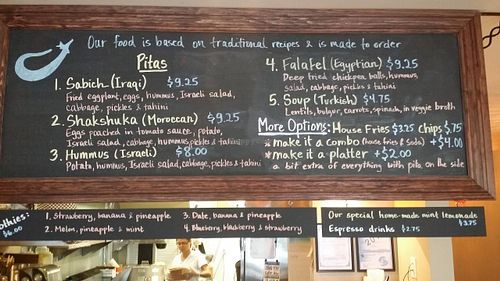 Our food is based on traditional recipes & is made to order
Pitas
1. Sabich (Iraqi) $9.25
Fried eggplant, eggs, hummus, Israeli salad,
cabbage, pickles & tahini
2. Shakshuka (Moroccan) $9.25
Eggs poached in tomato sauce, potato,
Israeli salad, cabbage, hummus, pickles & tahini
3. Hummus (Israeli) $8.00
Potato, hummus, Israeli salad, cabbage, pickles & tahini
4. Falafel (Egyptian) $9.25
Deep fried chickpea balls, hummus,
salad, cabbage, pickles & tahini
5. Soup (Turkish) $4.75
Lentils, bulgur, carrots, spinach, in veggie broth
More Options: House Fries $3.25 chips $.75
* make it a combo (house fries & soda) +$4.00
* make it a platter +$2.00
a bit extra of everything with pita on the side
othies:
$6.00
1. Strawberry, banana & pineapple
2. Melon, pineapple & mint
3. Date, banana & pineapple
4. Blueberry, blackberry & strawberry
Our special home-made mint lemonade
$3.75
Espresso drinks $2.75